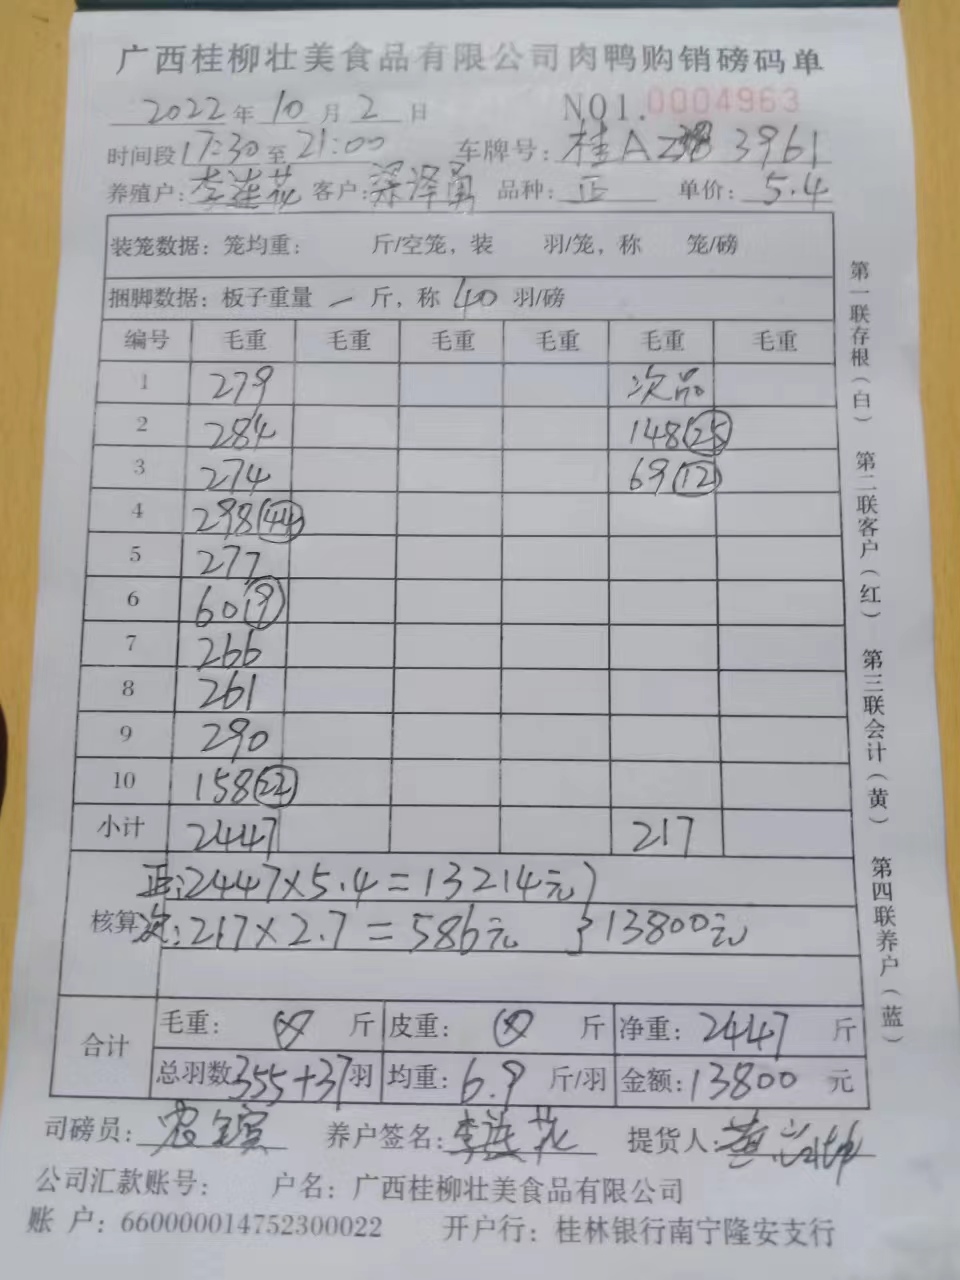 广西桂柳壮美食品有限公司肉鸭购销磅码单
2022年10月2日 NO1.0004963
时间段17:30至21:00 车牌号:桂A 3961
养殖户:李莲花 客户:梁泽勇 品种:正 单价:5.4
装笼数据:笼均重: 斤/空笼,装 羽/笼,称 笼/磅
捆脚数据:板子重量 一 斤,称 40 羽/磅
编号 毛重 毛重 毛重 毛重 毛重 毛重
1 279 次品
2 284 148(25)
3 274 69(12)
4 298(44)
5 277
6 60(9)
7 266
8 261
9 290
10 158(22)
小计 2447 217
正:2447×5.4=13214元
核算 次:217×2.7=586元 }13800元
合计
毛重: 斤 皮重: 斤 净重:2447 斤
总羽数355+37羽 均重:6.9 斤/羽 金额:13800 元
司磅员: 养户签名:李莲花 提货人:
公司汇款账号: 户名:广西桂柳壮美食品有限公司
账 户:660000014752300022 开户行:桂林银行南宁隆安支行
第一联存根(白) 第二联客户(红) 第三联会计(黄) 第四联养户(蓝)